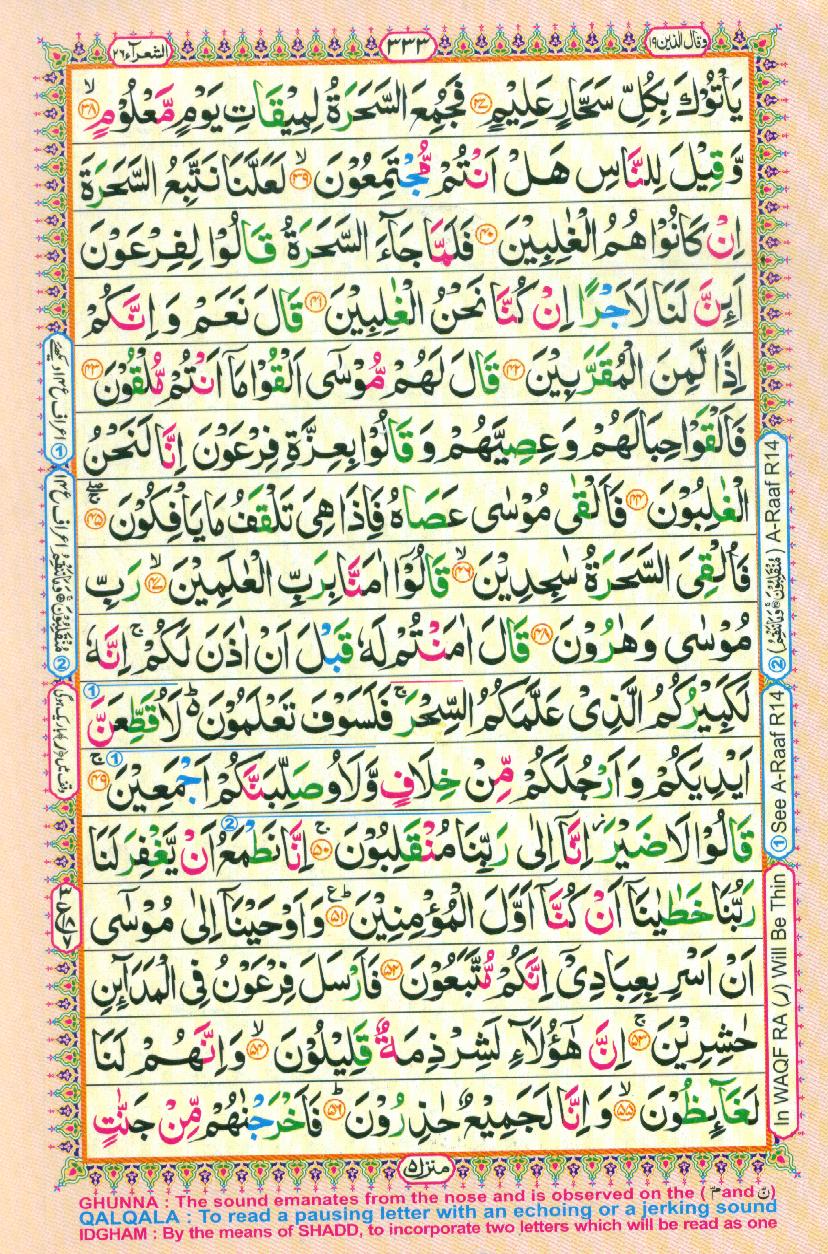 وقال الذين ١٩
٣٣٣
الشعرآء ٢٦
يَاْتُوْكَ بِكُلِّ سَحَّارٍ عَلِيْمٍ ﴿۳۷﴾ فَجُمِعَ السَّحَرَةُ لِمِيْقَاتِ يَوْمٍ مَّعْلُوْمٍ ۙ﴿۳۸﴾
وَّقِيْلَ لِلنَّاسِ هَلْ اَنْتُمْ مُّجْتَمِعُوْنَ ۙ﴿۳۹﴾ لَعَلَّنَا نَتَّبِعُ السَّحَرَةَ
اِنْ كَانُوْا هُمُ الْغٰلِبِيْنَ ﴿۴۰﴾ فَلَمَّا جَآءَ السَّحَرَةُ قَالُوْا لِفِرْعَوْنَ
اَئِنَّ لَنَا لَاَجْرًا اِنْ كُنَّا نَحْنُ الْغٰلِبِيْنَ ﴿۴۱﴾ قَالَ نَعَمْ وَ اِنَّكُمْ
اِذًا لَّمِنَ الْمُقَرَّبِيْنَ ﴿۴۲﴾ قَالَ لَهُمْ مُّوْسٰۤى اَلْقُوْا مَاۤ اَنْتُمْ مُّلْقُوْنَ ﴿۴۳﴾
فَاَلْقَوْا حِبَالَهُمْ وَ عِصِيَّهُمْ وَ قَالُوْا بِعِزَّةِ فِرْعَوْنَ اِنَّا لَنَحْنُ
الْغٰلِبُوْنَ ﴿۴۴﴾ فَاَلْقٰى مُوْسٰى عَصَاهُ فَاِذَا هِىَ تَلْقَفُ مَا يَاْفِكُوْنَ ﴿۴۵﴾
فَاُلْقِىَ السَّحَرَةُ سٰجِدِيْنَ ۙ﴿۴۶﴾ قَالُوْۤا اٰمَنَّا بِرَبِّ الْعٰلَمِيْنَ ۙ﴿۴۷﴾ رَبِّ
مُوْسٰى وَهٰرُوْنَ ﴿۴۸﴾ قَالَ اٰمَنْتُمْ لَهٗ قَبْلَ اَنْ اٰذَنَ لَكُمْ ۚ اِنَّهٗ
لَكَبِيْرُكُمُ الَّذِىْ عَلَّمَكُمُ السِّحْرَ ۚ فَلَسَوْفَ تَعْلَمُوْنَ ؕ لَاُقَطِّعَنَّ
اَيْدِيَكُمْ وَ اَرْجُلَكُمْ مِّنْ خِلَافٍ وَّلَاُوصَلِّبَنَّكُمْ اَجْمَعِيْنَ ۚ﴿۴۹﴾
قَالُوْا لَا ضَيْرَ ؗ اِنَّاۤ اِلٰى رَبِّنَا مُنْقَلِبُوْنَ ۚ﴿۵۰﴾ اِنَّا نَطْمَعُ اَنْ يَّغْفِرَ لَنَا
رَبُّنَا خَطٰيٰنَاۤ اَنْ كُنَّاۤ اَوَّلَ الْمُؤْمِنِيْنَ ؕ﴿۵۱﴾ وَ اَوْحَيْنَاۤ اِلٰى مُوْسٰۤى
اَنْ اَسْرِ بِعِبَادِىْۤ اِنَّكُمْ مُّتَّبَعُوْنَ ﴿۵۲﴾ فَاَرْسَلَ فِرْعَوْنُ فِى الْمَدَآئِنِ
حٰشِرِيْنَ ۚ﴿۵۳﴾ اِنَّ هٰٓؤُلَآءِ لَشِرْذِمَةٌ قَلِيْلُوْنَ ۙ﴿۵۴﴾ وَ اِنَّهُمْ لَنَا
لَغَآئِظُوْنَ ۙ﴿۵۵﴾ وَ اِنَّا لَجَمِيْعٌ حٰذِرُوْنَ ؕ﴿۵۶﴾ فَاَخْرَجْنٰهُمْ مِّنْ جَنّٰتٍ
② (مُنْقَلِبُوْنَ ۚ وَمَا تَنْقِمُ) A-Raaf R14
① See A-Raaf R14
In WAQF RA (ر) Will Be Thin
منزل ٥
GHUNNA : The sound emanates from the nose and is observed on the ( مّ and نّ)
QALQALA : To read a pausing letter with an echoing or a jerking sound
IDGHAM : By the means of SHADD, to incorporate two letters which will be read as one